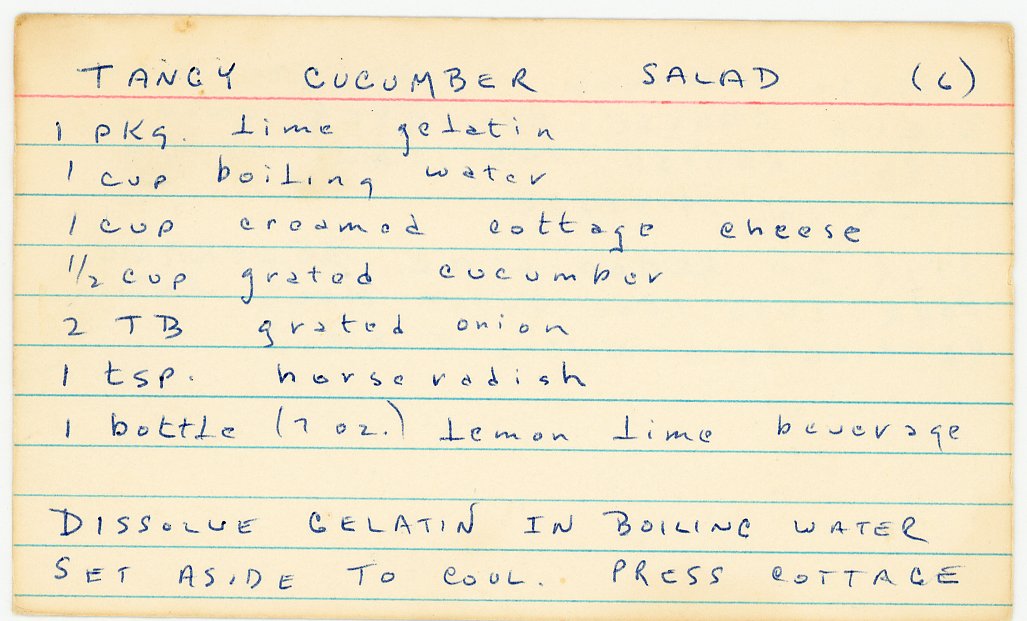 TANGY CUCUMBER SALAD (6)
1 pkg. lime gelatin
1 cup boiling water
1 cup creamed cottage cheese
1/2 cup grated cucumber
2 TB grated onion
1 tsp. horseradish
1 bottle (7 oz.) lemon lime beverage
DISSOLVE GELATIN IN BOILING WATER
SET ASIDE TO COOL. PRESS COTTAGE